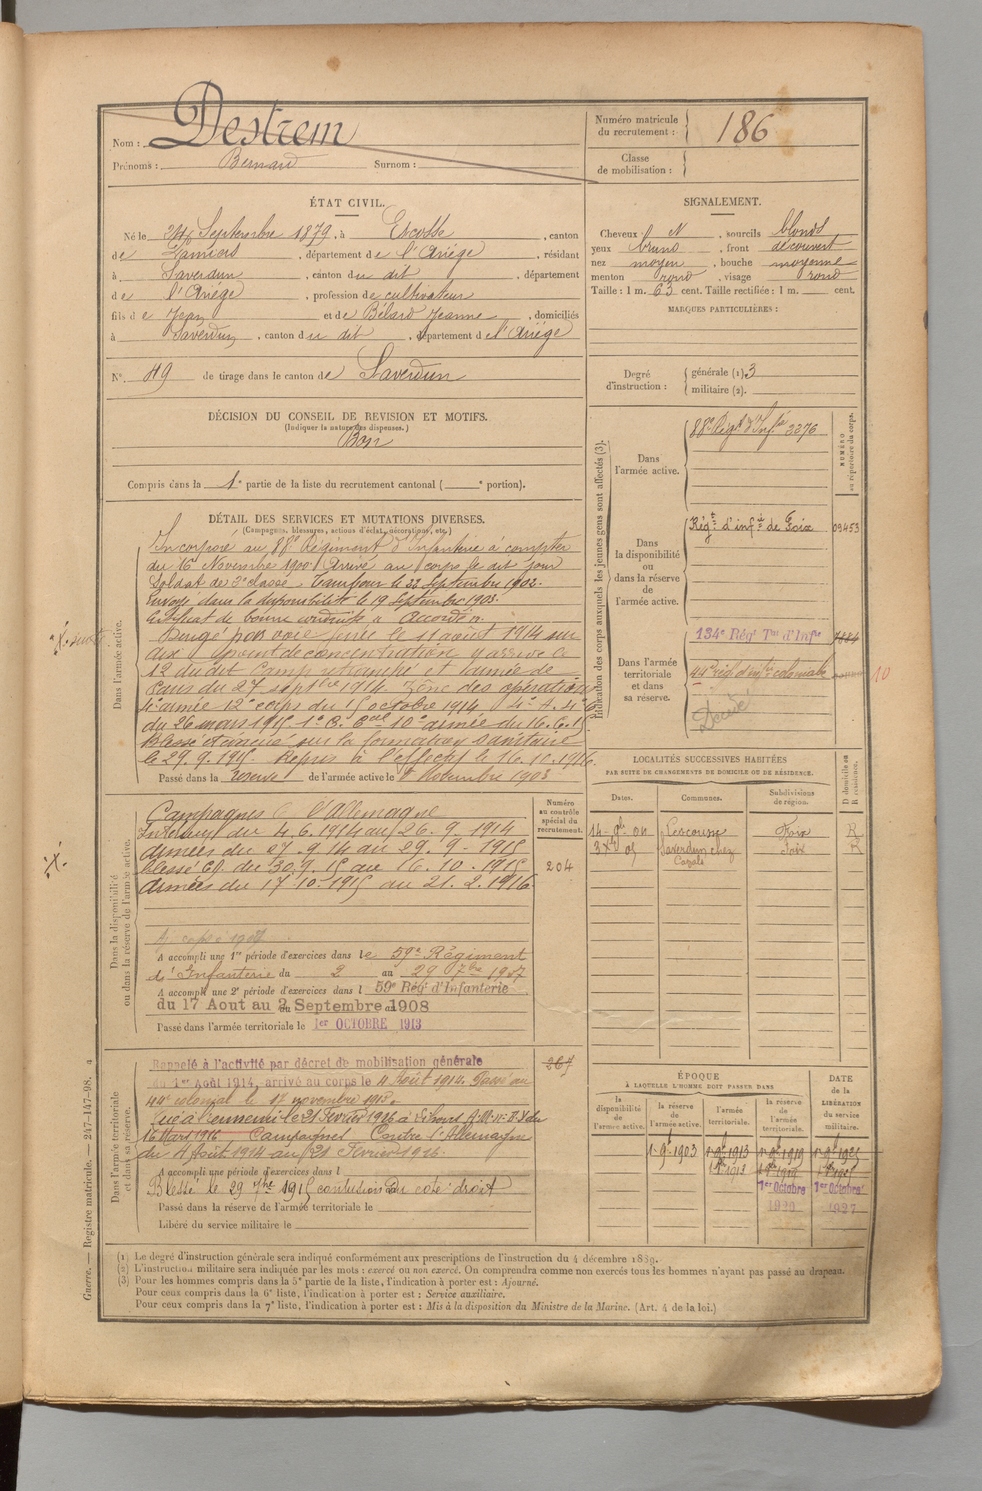 Nom : Destrem
Prénoms : Bernard Surnom :
Numéro matricule du recrutement : 186
Classe de mobilisation :
ÉTAT CIVIL.
Né le 24 Septembre 1879, à Escosse, canton
de Pamiers, département de l'Ariège, résidant
à Saverdun, canton du dit, département
de l'Ariège, profession de cultivateur
fils de Jean et de Bélard Jeanne, domiciliés
à Saverdun, canton du dit, département de l'Ariège
N° 49 de tirage dans le canton de Saverdun
SIGNALEMENT.
Cheveux N, sourcils blonds
yeux bruns, front découvert
nez moyen, bouche moyenne
menton rond, visage rond
Taille : 1 m. 63 cent. Taille rectifiée : 1 m. cent.
MARQUES PARTICULIÈRES :
Degré d'instruction : générale (1). 3
militaire (2).
DÉCISION DU CONSEIL DE REVISION ET MOTIFS.
(Indiquer la nature des dispenses.)
Bon
Compris dans la 1e partie de la liste du recrutement cantonal ( e portion).
DÉTAIL DES SERVICES ET MUTATIONS DIVERSES.
(Campagnes, blessures, actions d'éclat, décorations, etc.)
Dans l'armée active.
Incorporé au 88e Régiment d'Infanterie à compter
du 16 Novembre 1900. Arrivé au corps le dit jour
Soldat de 2e classe. Tambour le 22 Septembre 1902.
Envoyé dans la disponibilité le 19 Septembre 1903.
Certificat de bonne conduite "Accordé".
Dirigé par voie ferrée le 11 août 1914 sur
point de concentration y arrive le
12 dudit Camp retranché et armée de
Paris du 27 septbre 1914. Zône des opérations
armée 12e corps du 15 octobre 1914
du 26 mars 1915 10e armée du 16.6.15
Blessé et évacué sur la formation sanitaire
le 29.9.1915. Repris à l'effectif le 16.10.1916.
Passé dans la réserve de l'armée active le 1er Novembre 1903
Indication des corps auxquels les jeunes gens sont affectés (3).
NUMÉRO au répertoire du corps.
Dans l'armée active.
88e Régt d'Infie 3276
Dans la disponibilité ou dans la réserve de l'armée active.
Régt d'infie de Foix 09453
Dans l'armée territoriale et dans sa réserve.
134e Régt Tal d'Infie
44e régt d'infie coloniale 10
Décédé
LOCALITÉS SUCCESSIVES HABITÉES
PAR SUITE DE CHANGEMENTS DE DOMICILE OU DE RÉSIDENCE.
Dates. Communes. Subdivisions de région. D domicile ou R résidence.
Lescousse Foix R
Saverdun chez Cazals Foix R
Dans la disponibilité ou dans la réserve de l'armée active.
Numéro au contrôle spécial du recrutement.
204
Campagnes C l'Allemagne
Intérieur du 4.6.1914 au 26.9.1914
Armées du 27.9.14 au 29.9.1915
blessé du 30.9.15 au 16.10.1915
Armées du 17.10.1915 au 21.2.1916
A accompli une 1re période d'exercices dans le 59e Régiment
d'Infanterie du 2 au 29 7bre 1907
A accompli une 2e période d'exercices dans l 59e Régt d'Infanterie
du 17 Aout au 2 Septembre 1908
Passé dans l'armée territoriale le 1er OCTOBRE 1913
Dans l'armée territoriale et dans sa réserve.
Rappelé à l'activité par décret de mobilisation générale
du 1er Août 1914, arrivé au corps le 4 Août 1914. Passé au
44e colonial le 12 novembre 1915.
Tué à l'ennemi le 21 Février 1916 à Lihons
16 Mars 1916. Campagnes Contre l'Allemagne
du 4 Août 1914 au 21 Février 1916.
A accompli une période d'exercices dans l
Blessé le 29 7bre 1915 contusion du coté droit
Passé dans la réserve de l'armée territoriale le
Libéré du service militaire le
267
ÉPOQUE
À LAQUELLE L'HOMME DOIT PASSER DANS
la disponibilité de l'armée active. la réserve de l'armée active. l'armée territoriale. la réserve de l'armée territoriale.
DATE de la LIBÉRATION du service militaire.
1er Octobre 1920 1er Octobre 1927
(1) Le degré d'instruction générale sera indiqué conformément aux prescriptions de l'instruction du 4 décembre 1889.
(2) L'instruction militaire sera indiquée par les mots : exercé ou non exercé. On comprendra comme non exercés tous les hommes n'ayant pas passé au drapeau.
(3) Pour les hommes compris dans la 5e partie de la liste, l'indication à porter est : Ajourné.
Pour ceux compris dans la 6e liste, l'indication à porter est : Service auxiliaire.
Pour ceux compris dans la 7e liste, l'indication à porter est : Mis à la disposition du Ministre de la Marine. (Art. 4 de la loi.)
Guerre. — Registre matricule. — 247-147-98.